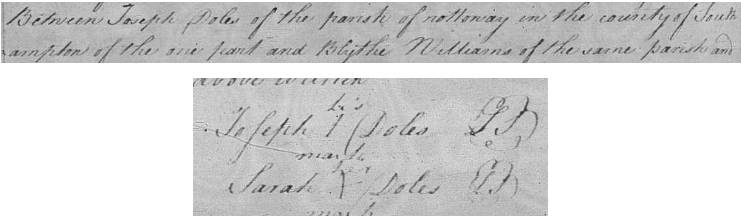 Between Joseph Doles of the parish of nottoway in the county of South
ampton of the one part and Blythe Williams of the same parish and
above written
his
Joseph I Doles
mark
her
Sarah Doles
mark